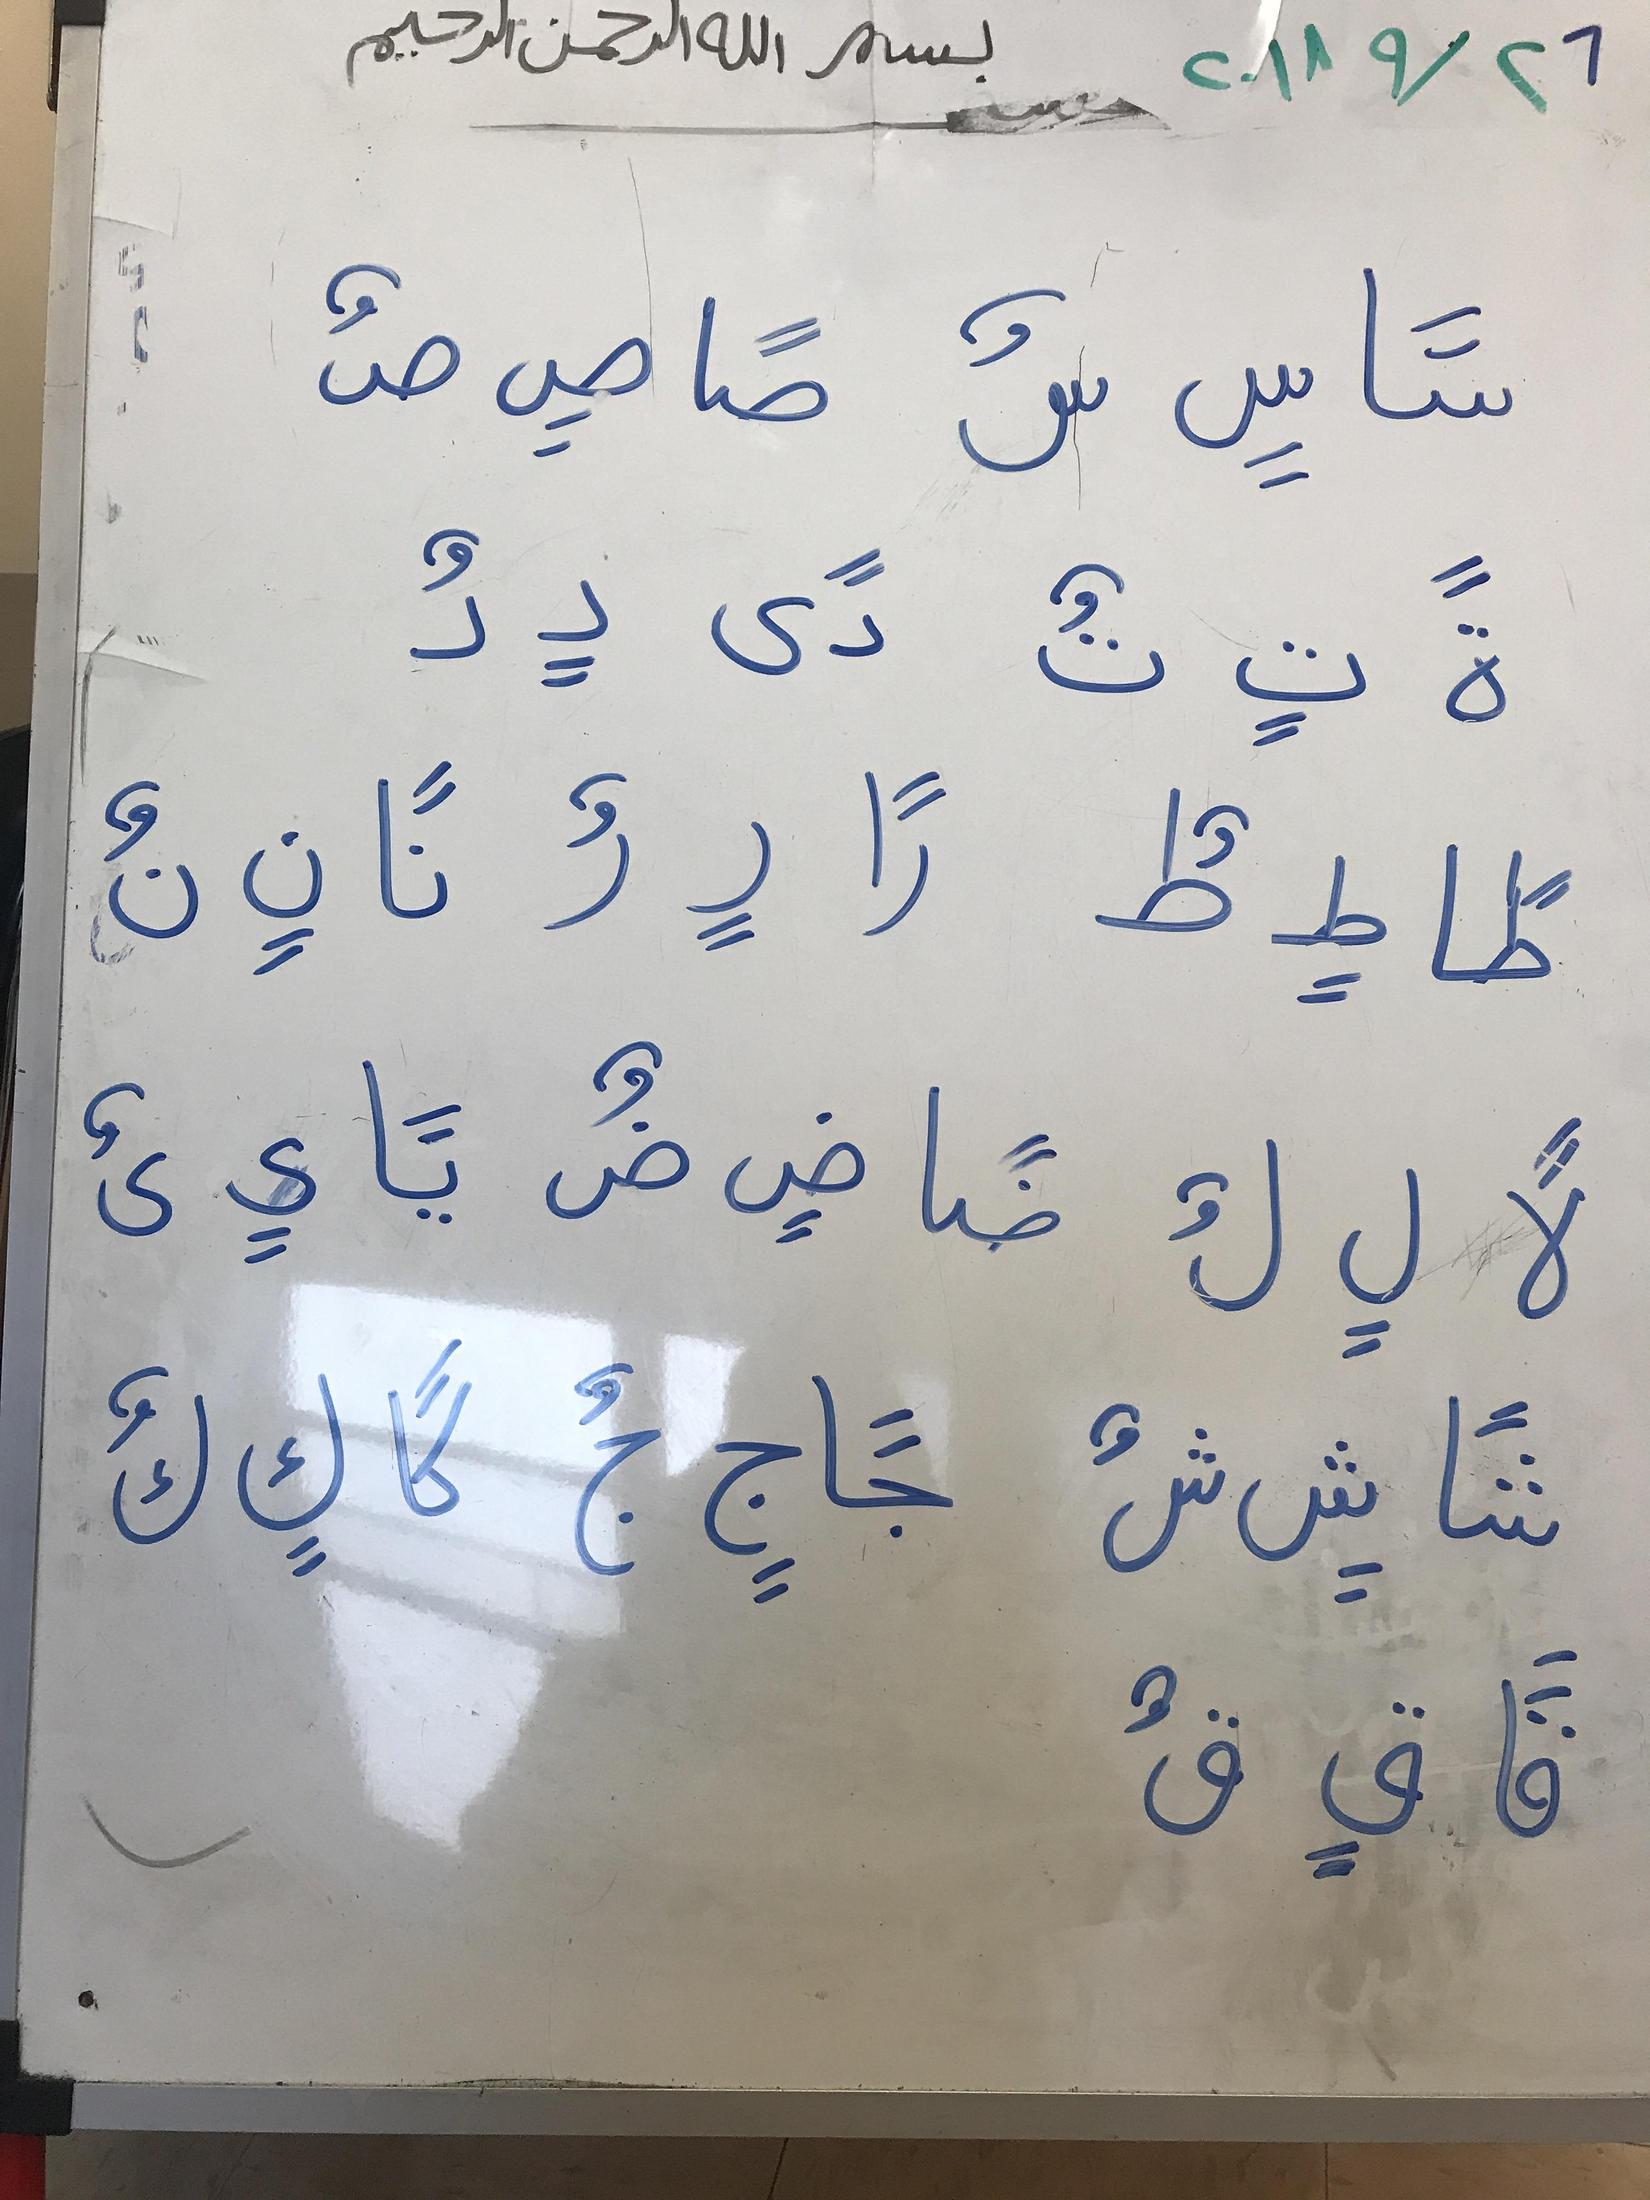 ٢٦ / ٩ ٢٠١٨
بسم الله الرحمن الرحيم
سًا سٍ سٌ صًا صٍ صٌ
ةً تٍ تٌ دًى دٍ دٌ
طًا طٍ طٌ رًا رٍ رٌ نًا نٍ نٌ
لًا لٍ لٌ ضًا ضٍ ضٌ يًا يٍ ىٌ
شًا شٍ شٌ جًا جٍ جٌ كًا كٍ كٌ
قًا قٍ قٌ